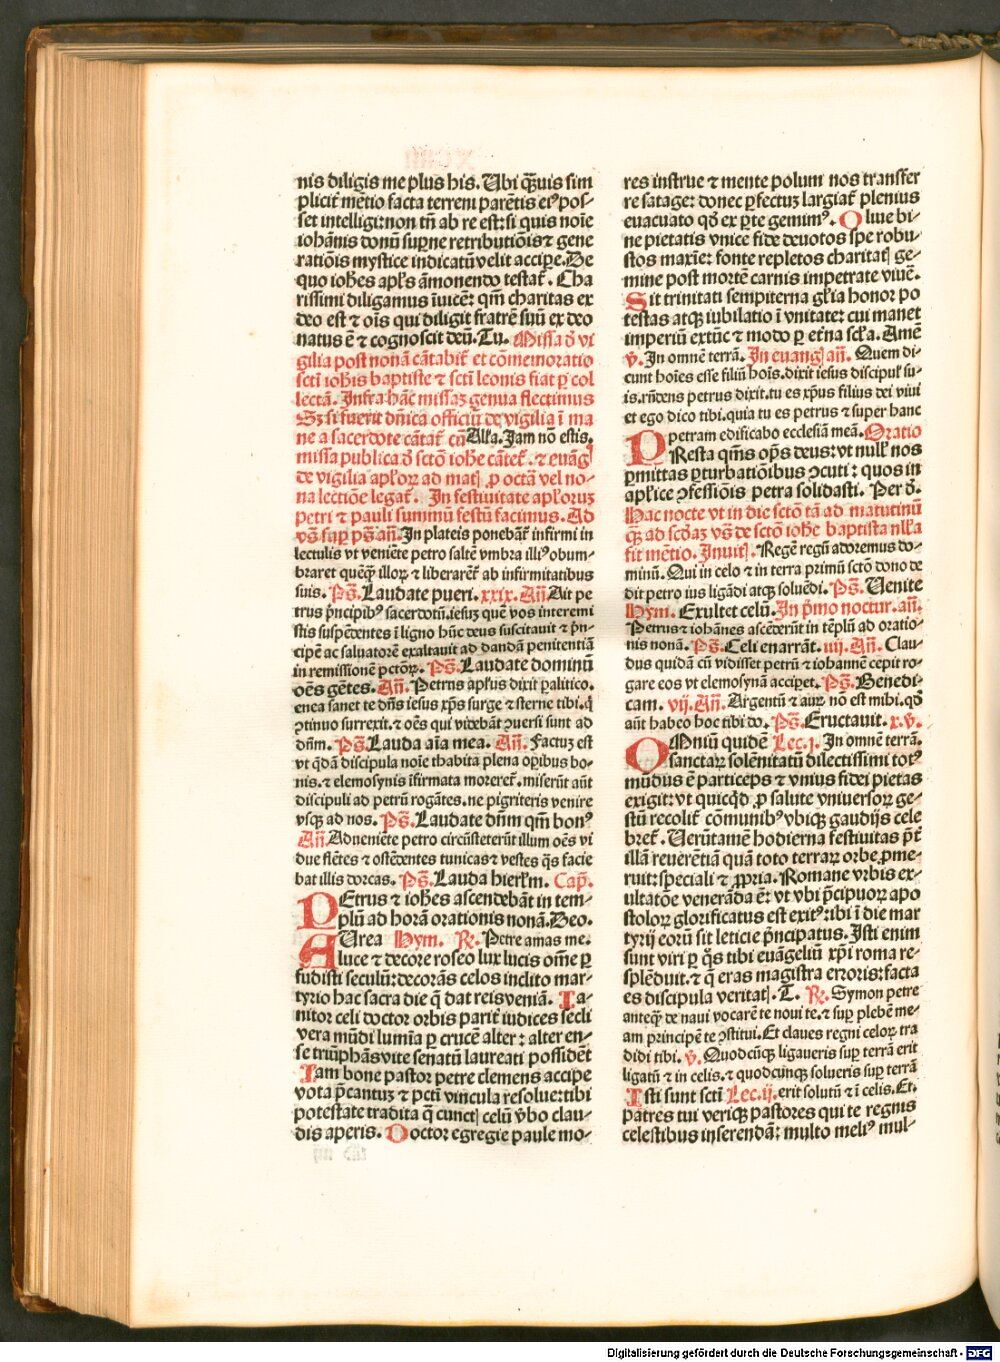 nis diligis me plus his. Ubi q̃uis sim
plicit᷑ mẽtio facta terreni parẽtis eiꝰ pos-
set intelligi: non tñ ab re est: si quis noĩe
iohãnis donũ supne retributiõis ⁊ gene
ratiõis mystice indicatũ velit accipe. De
quo iohẽs apl̃s ãmonendo testat᷑. Cha
rissimi diligamus ĩuicẽ: qm̃ charitas ex
deo est ⁊ oĩs qui diligit fratrẽ suũ ex deo
natus ẽ ⁊ cognoscit deũ. Tu. Missa d̾ vi
gilia post nonã cãtabit᷑ et cõmemoratio
scti iohis baptiste ⁊ scti leonis fiat p̱ col
lectã. Infra hãc missaz genua flectimus
Sz si fuerit dñica officiũ de vigilia ĩ ma
ne a sacerdote cãtat᷑ cũ Allã. Jam nõ estis.
missa publica d̾ sctõ iohe cãtet᷑. ⁊ euãgl
de vigilia apl̃oꝝ ad matꝭ ꝓ octã vel no-
na lectiõe legat᷑. In festiuitate apl̃oruz
petri ⁊ pauli summũ festũ facimus. Ad
vs̃. sup ps̃ añ. In plateis ponebãt᷑ infirmi in
lectulis vt veniẽte petro saltẽ vmbra illiꝰ obum-
braret quẽqꝫ illoꝝ ⁊ liberarẽt᷑ ab infirmitatibus
suis. Ps̃. Laudate pueri. xxix. Añ. Ait pe
trus p̃ncipibꝰ sacerdotũ. iesuz quẽ vos interemi
stis suspẽdentes ĩ ligno hũc deus suscitauit ⁊ p̃n-
cipẽ ac saluatorẽ exaltauit ad dandã penitentiã
in remissionẽ pctõꝝ. Ps̃. Laudate dominũ
oẽs gẽtes. Añ. Petrus apl̃us dixit palitico.
enea sanet te dñs iesus xp̃s surge ⁊ sterne tibi. q̇
ꝯtinuo surrexit. ⁊ oẽs qui videbãt ꝯuersi sunt ad
dñm. Ps̃. Lauda aĩa mea. Añ. Factuz est
vt q̃dã discipula noĩe thabita plena opibus bo-
nis. ⁊ elemosynis ĩfirmata moreret᷑. miserũt aũt
discipuli ad petrũ rogãtes. ne pigriteris venire
vsqꝫ ad nos. Ps̃. Laudate dñm qm̃ bonꝰ
Añ. Adueniẽte petro circũsteterũt illum oẽs vi
due flẽtes ⁊ ostẽdentes tunicas ⁊ vestes q̃s facie
bat illis dorcas. Ps̃. Lauda hierl̃m. Cap̃.
PEtrus ⁊ iohẽs ascendebãt in tem-
plũ ad horã orationis nonã. Deo.
AUrea Hym. R̃. Petre amas me.
luce ⁊ decore roseo lux lucis om̃e p̱
fudisti seculũ: decorãs celos inclito mar-
tyrio hac sacra die q̃ dat reis veniã. Ja-
nitor celi doctor orbis parit᷑ iudices secli
vera mũdi lumĩa p̱ crucẽ alter: alter en-
se triũphãs vite senatũ laureati possidẽt
Jam bone pastor petre clemens accipe
vota p̃cantuz ⁊ pcti vincula resolue: tibi
potestate tradita q̃ cunctꝭ celũ v̾bo clau-
dis aperis. Doctor egregie paule mo-
res instrue ⁊ mente polum nos transfer
re satage: donec pfectuz largiat᷑ plenius
euacuato qd̾ ex pte gemimꝰ. Oliue bi-
ne pietatis vnice fide deuotos spe robu-
stos maxĩe: fonte repletos charitatꝭ ge-
mine post mortẽ carnis impetrate viuẽ.
Sit trinitati sempiterna gl̃ia honor po
testas atqꝫ iubilatio ĩ vnitate: cui manet
imperiũ extũc ⁊ modo p̱ et̾na sclã. Amẽ
v̾. In omnẽ terrã. In euangl̃ añ. Quem di-
cunt hoĩes esse filiũ hoĩs. dixit iesus discipul᷑ su-
is. rñdens petrus dixit. tu es xp̃us filius dei viui
et ego dico tibi. quia tu es petrus ⁊ super hanc
petram edificabo ecclesiã meã. Oratio
PResta qm̃s op̃s deus: vt null᷑ nos
pmittas pturbatiõibus ꝯcuti: quos in
apl̃ice ꝯfessiõis petra solidasti. Per d̾.
Hac nocte vt in die sctõ tã ad matutinũ
q̃ ad scd̾az vs̃ de sctõ iohe baptista nll̃a
fit mẽtio. Inuitꝭ. Regẽ regũ adoremus do-
minũ. Qui in celo ⁊ in terra primũ sctõ dono de
dit petro ius ligãdi atqꝫ soluẽdi. Ps̃. Uenite
Hym. Exultet celũ. In p̃mo noctur. añ.
Petrus ⁊ iohãnes ascẽderũt in tẽplũ ad oratio-
nis nonã. Ps̃. Celi enarrãt. iiij. Añ. Clau-
dus quidã cũ vidisset petrũ ⁊ iohannẽ cepit ro-
gare eos vt elemosynã accipet. Ps̃. Benedi-
cam. vij. Añ. Argentũ ⁊ auꝝ nõ est mibi. qd̾
aũt habeo hoc tibi do. Ps̃. Eructauit. x. v̾.
OMniũ quidẽ Lec. j. In omnẽ terrã.
sanctaꝝ solẽnitatũ dilectissimi totꝰ
mũdus ẽ particeps ⁊ vnius fidei pietas
exigit: vt quicq̇d ꝓ salute vniuersoꝝ ge-
stũ recolit᷑ cõmunibꝰ vbiqꝫ gaudijs cele
bret᷑. Uerũtamẽ hodierna festiuitas p̃t
illã reuerẽtiã quã toto terraꝝ orbe ꝓme-
ruit: speciali ⁊ ꝓpria. Romane vrbis ex-
ultatõe venerãda ẽ: vt vbi p̃cipuoꝝ apo
stoloꝝ glorificatus est exitꝰ: ibi ĩ die mar
tyrij eorũ sit leticie p̃ncipatus. Isti enim
sunt viri p̱ q̃s tibi euãgeliũ xp̃i roma re-
splẽduit. ⁊ q̃ eras magistra erroris: facta
es discipula veritatꝭ. T. R̃. Symon petre
anteq̃ de naui vocarẽ te noui te. ⁊ sup plebẽ me-
am principẽ te ꝯstitui. Et claues regni celoꝝ tra
didi tibi. v̾. Quodcũqꝫ ligaueris sup terrã erit
ligatũ ⁊ in celis. ⁊ quodcũnqꝫ solueris sup terrã
Isti sunt scti Lec. ij. erit solutũ ⁊ ĩ celis. Et.
patres tui veriqꝫ pastores qui te regnis
celestibus inserendã: multo meliꝰ mul-
Digitalisierung gefördert durch die Deutsche Forschungsgemeinschaft - DFG